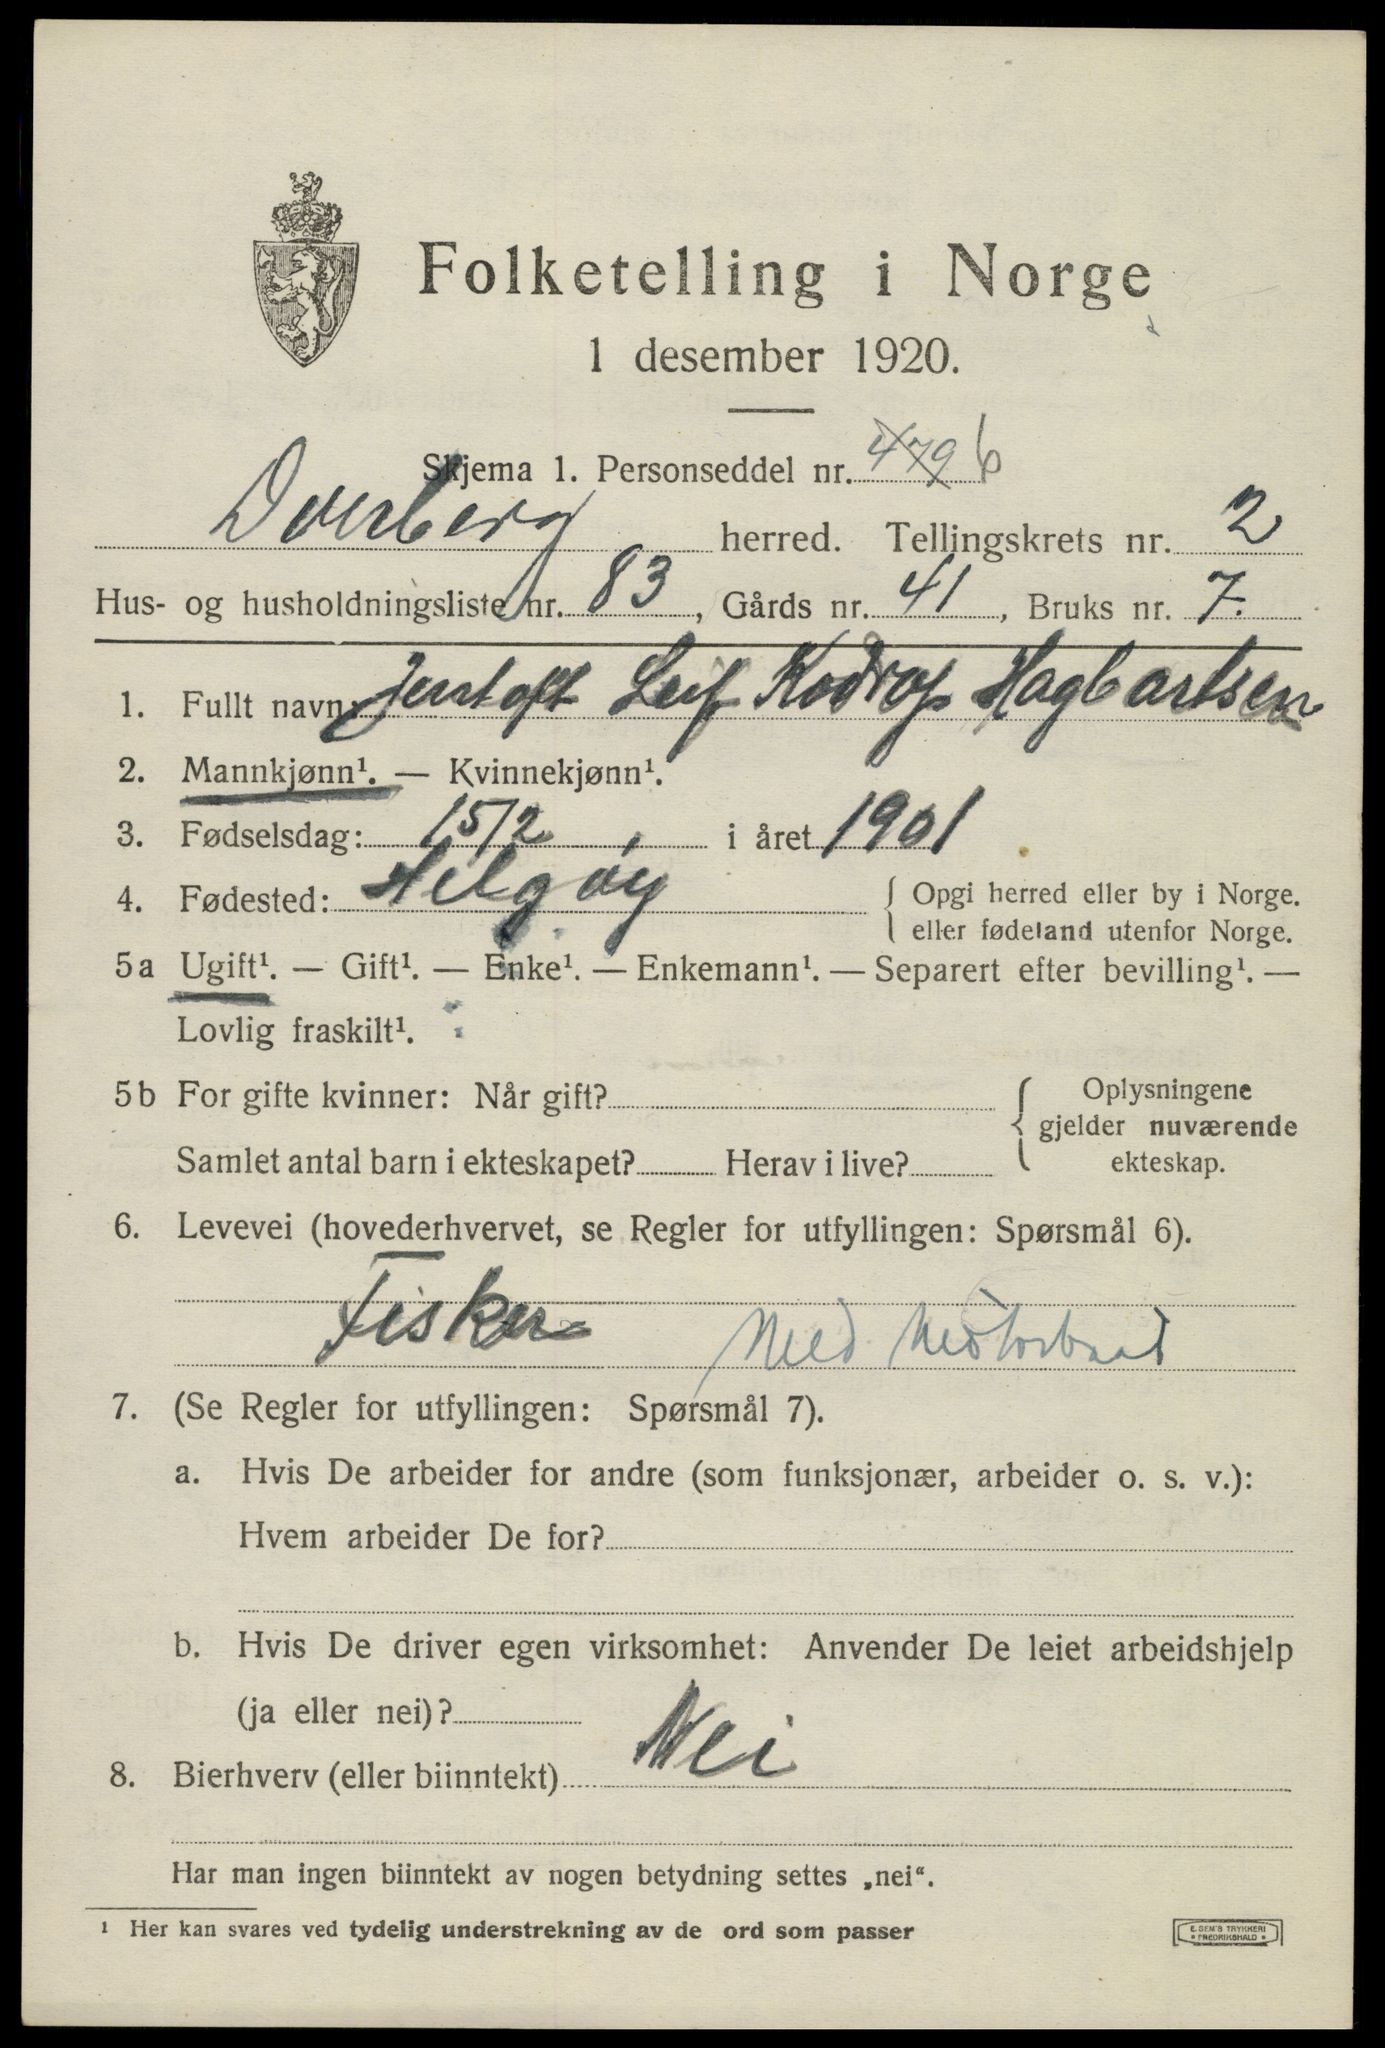 Folketelling i Norge
1 desember 1920.
Skjema 1. Personseddel nr. 479 6
Dverberg herred. Tellingskrets nr. 2
Hus- og husholdningsliste nr. 83, Gårds nr. 41, Bruks nr. 7.
1. Fullt navn: Jentoft Leif Kodrof Hagbartsen
2. Mannkjønn¹. — Kvinnekjønn¹.
3. Fødselsdag: 15/2 i året 1901
4. Fødested: Helgøy { Opgi herred eller by i Norge.
eller fødeland utenfor Norge.
5a Ugift¹. — Gift¹. — Enke¹. — Enkemann¹. — Separert efter bevilling¹. —
Lovlig fraskilt¹.
5b For gifte kvinner: Når gift? { Oplysningene
gjelder nuværende
Samlet antal barn i ekteskapet? Herav i live? ekteskap.
6. Levevei (hovederhvervet, se Regler for utfyllingen: Spørsmål 6).
Fisker Med Motorbaad
7. (Se Regler for utfyllingen: Spørsmål 7).
a. Hvis De arbeider for andre (som funksjonær, arbeider o. s. v.):
Hvem arbeider De for?
b. Hvis De driver egen virksomhet: Anvender De leiet arbeidshjelp
(ja eller nei)?
8. Bierhverv (eller biinntekt) Nei
Har man ingen biinntekt av nogen betydning settes „nei“.
¹ Her kan svares ved tydelig understrekning av de ord som passer
E. SEM'S TRYKKERI
• FREDRIKSHALD •